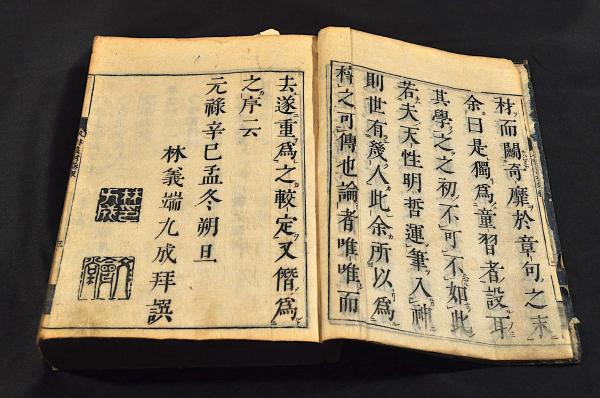 材而鬭奇靡於章句之末
余曰是獨爲童習者設耳
其學之之初不可不如此
若夫天性明哲運筆入神
則世有幾人此余所以爲
之可傳也論者唯唯而
去遂重爲之較定又僭爲
之序云
元祿辛巳孟冬朔旦
林義端九成拜譔
文會堂